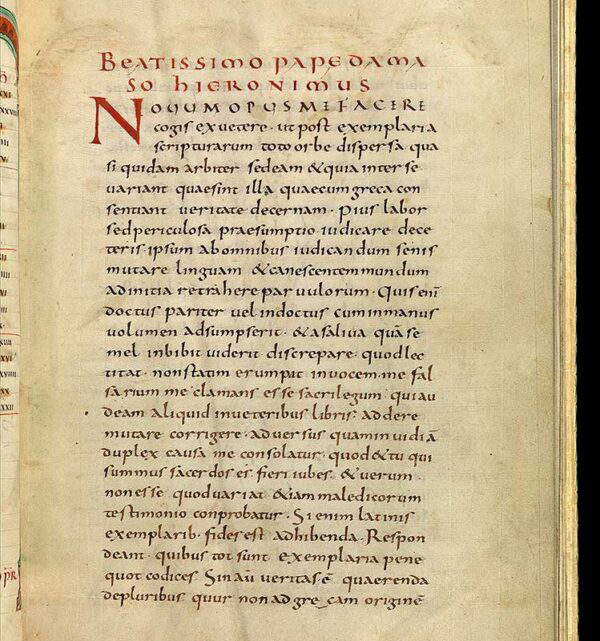 BEATISSIMO PAPE DAMA
SO HIERONIMUS
NOUUM OPUS ME FACERE
cogis ex uetere · ut post exemplaria
scripturarum toto orbe dispersa qua
si quidam arbiter sedeam & quia inter se
uariant quae sint illa quae cum greca con
sentiant ueritate decernam · Pius labor
sed periculosa praesumptio iudicare dece
teris · ipsum ab omnibus iudicandum senis
mutare linguam & canescentem mundum
ad initia retrahere paruulorum · Quis enī
doctus pariter uel indoctus cum in manus
uolumen adsumpserit · & a saliua quā se
mel inbibit uiderit discrepare · quod lec
titat · non statim erumpat in uocem · me fal
sarium me clamans esse sacrilegum qui au
deam aliquid in ueteribus libris addere
mutare corrigere · aduersus quam inuidiā
duplex causa me consolatur · quod & tu qui
summus sacerdos es fieri iubes · & uerum
non esse quod uariat &iam maledicorum
testimonio conprobatur · Si enim latinis
exemplarib· fides est adhibenda · Respon
deant · quibus tot sunt exemplaria pene
quot codices Sin aū ueritas ē quaerenda
de pluribus quur non ad grecam originē